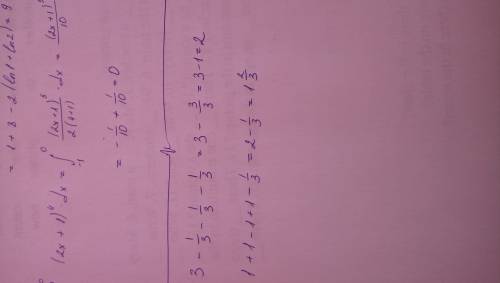 = 1 + 3 - 2 (ln1 + ln2) = 9
(2x + 1)⁴ dx = ∫₋₁⁰ (2x+1)⁵/2(4+1) · dx = (2x+1)⁵/10
= - 1/10 + 1/10 = 0
3 - 1/3 - 1/3 - 1/3 = 3 - 3/3 = 3 - 1 = 2
1 + 1 - 1 + 1 - 1/3 = 2 - 1/3 = 1 2/3